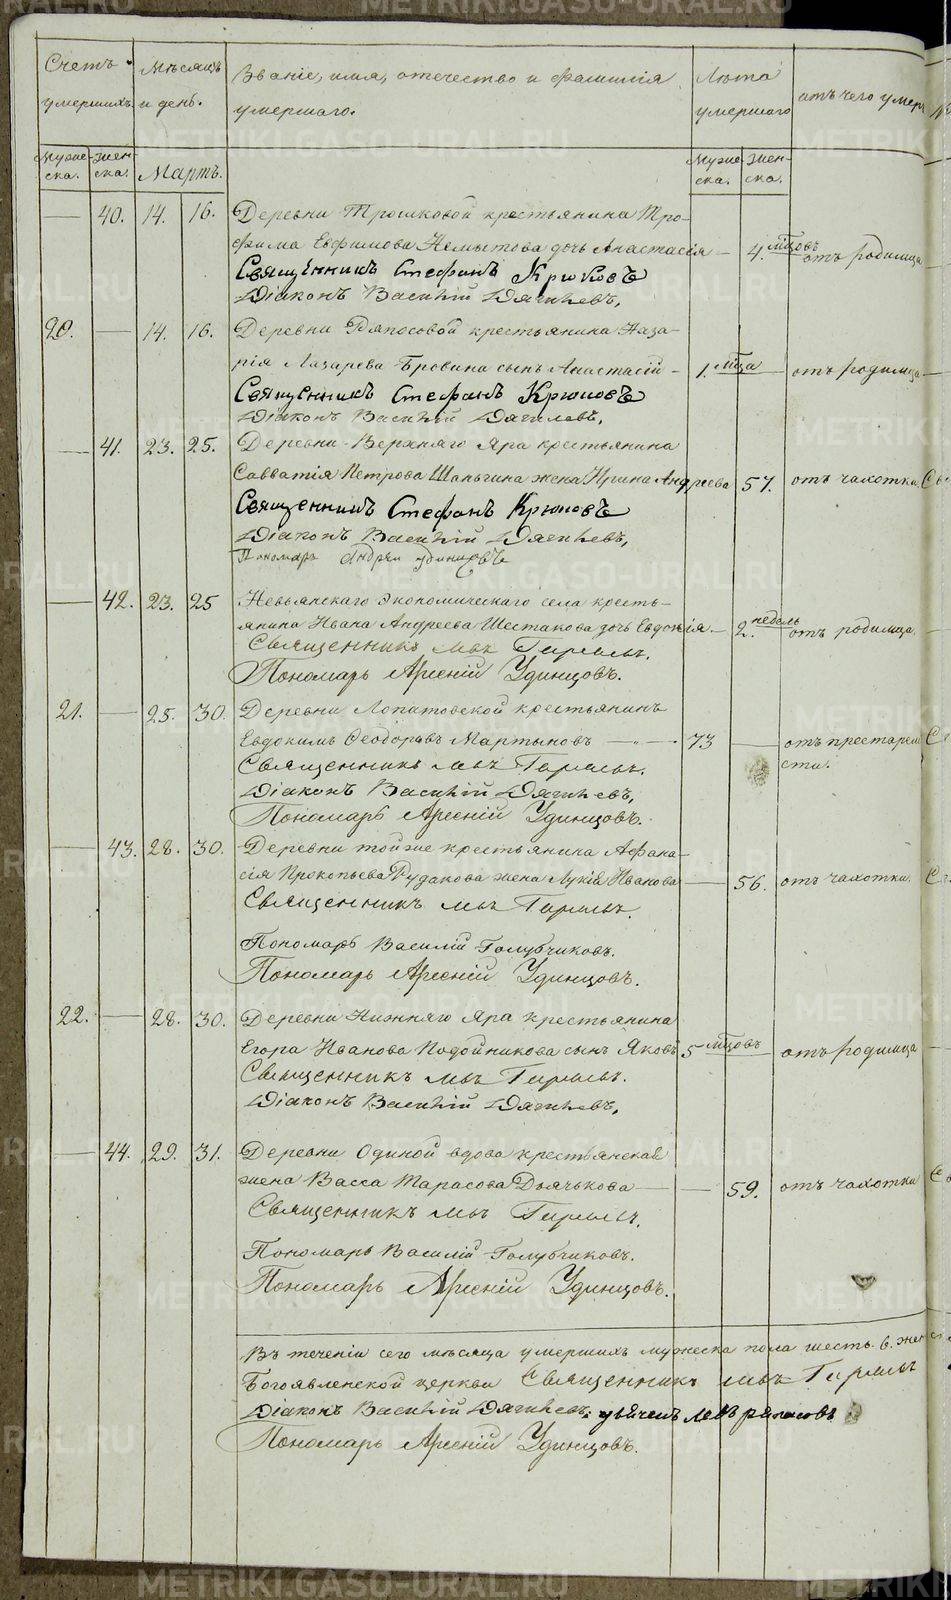 Счетъ умершихъ. Мѣсяцъ и день. Званіе, имя, отечество и фамилія умершаго. Лѣта умершаго отъ чего умер
Муже-ска. Жен-ска. Мартъ. Муже-ска. Жен-ска.
— 40. 14. 16. Деревни Трошковой крестьянина Тро-
фима Евфимова Немытова дочь Анастасія — 4. мцовъ отъ родимца
Священникъ Стефанъ Крюковъ
Діаконъ Василій Дягилевъ,
20. — 14. 16. Деревни Ряпосовой крестьянина Наза-
рія Лазарева Бровина сынъ Анастасій — 1. мца отъ родимца
Священникъ Стефанъ Крюковъ
Діаконъ Василій Дягилевъ,
— 41. 23. 25. Деревни Верхняго Яра крестьянина
Савватія Петрова Шаньгина жена Ирина Андреева 57. отъ чахотки.
Священникъ Стефанъ Крюковъ
Діаконъ Василій Дягилевъ,
Пономарь Андрей Удинцовъ
— 42. 23. 25 Невьянскаго экономическаго села кресть-
янина Ивана Андреева Шестакова дочь Евдокія. — 2. недель отъ родимца.
Священникъ Левъ Гаряевъ.
Пономарь Арсеній Удинцовъ.
21. — 25. 30. Деревни Лопатовской крестьянинъ
Евдокимъ Ѳеодоровъ Мартыновъ — 73 — отъ престарело
сти.
Священникъ Левъ Гаряевъ.
Діаконъ Василій Дягилевъ,
Пономарь Арсеній Удинцовъ.
— 43. 28. 30. Деревни тойже крестьянина Афана-
сія Прокопьева Рудакова жена Лукія Иванова — 56. отъ чахотки.
Священникъ Левъ Гаряевъ.
Пономарь Василій Голубчиковъ.
Пономарь Арсеній Удинцовъ.
22. — 28. 30. Деревни Нижняго Яра крестьянина
Егора Иванова Подойникова сынъ Яковъ 5 мцовъ отъ родимца
Священникъ Левъ Гаряевъ.
Діаконъ Василій Дягилевъ,
— 44. 29. 31. Деревни Одиной вдова крестьянская
жена Васса Тарасова Дьячкова — 59. отъ чахотки
Священникъ Левъ Гаряевъ.
Пономарь Василій Голубчиковъ.
Пономарь Арсеній Удинцовъ.
Въ теченіи сего мѣсяца умершихъ мужеска пола шесть. 6. жен
Богоявленской церкви Священникъ Левъ Гаряевъ
Діаконъ Василій Дягилевъ,
Пономарь Арсеній Удинцовъ.
METRIKI.GASO-URAL.RU